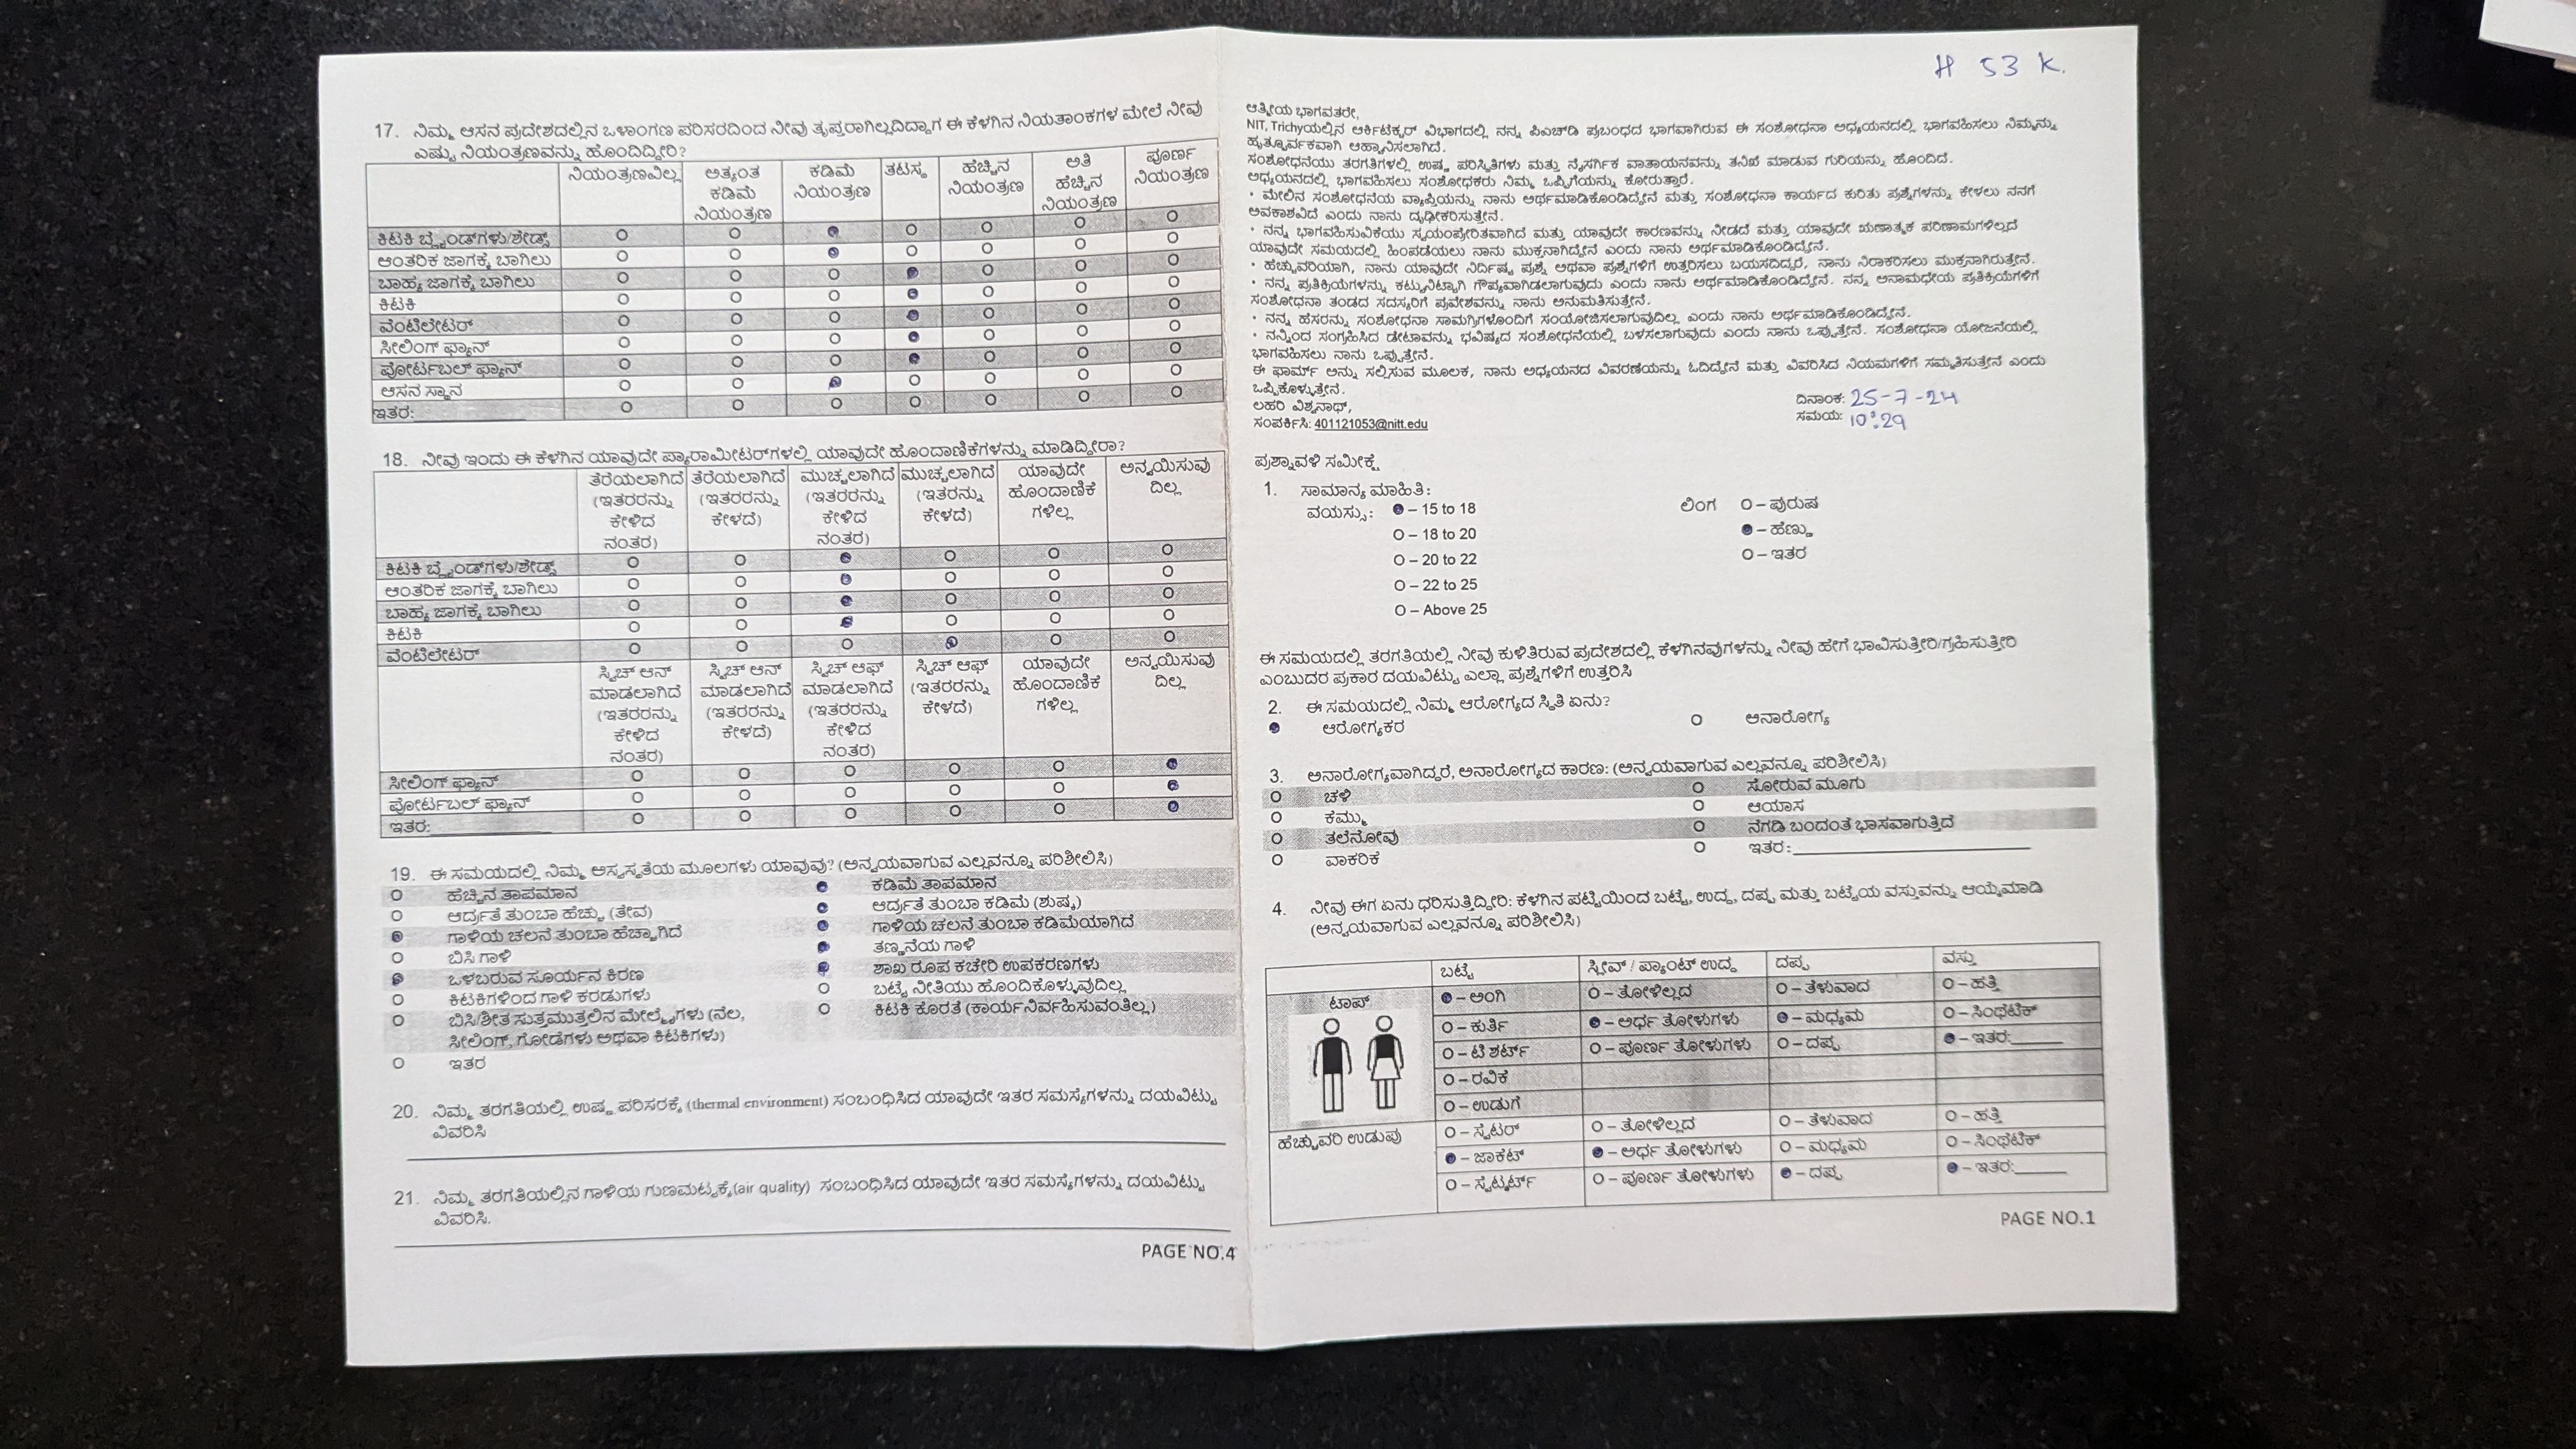 17. ನಿಮ್ಮ ಆಸನ ಪ್ರದೇಶದಲ್ಲಿನ ಒಳಾಂಗಣ ಪರಿಸರದಿಂದ ನೀವು ತೃಪ್ತರಾಗಿಲ್ಲದಿದ್ದಾಗ ಈ ಕೆಳಗಿನ ನಿಯತಾಂಕಗಳ ಮೇಲೆ ನೀವು
ಎಷ್ಟು ನಿಯಂತ್ರಣವನ್ನು ಹೊಂದಿದ್ದೀರಿ?
ನಿಯಂತ್ರಣವಿಲ್ಲ ಅತ್ಯಂತ ಕಡಿಮೆ ನಿಯಂತ್ರಣ ಕಡಿಮೆ ನಿಯಂತ್ರಣ ತಟಸ್ಥ ಹೆಚ್ಚಿನ ನಿಯಂತ್ರಣ ಅತಿ ಹೆಚ್ಚಿನ ನಿಯಂತ್ರಣ ಪೂರ್ಣ ನಿಯಂತ್ರಣ
ಕಿಟಕಿ ಬ್ಲೈಂಡ್‌ಗಳು/ಶೇಡ್ಸ್
ಆಂತರಿಕ ಜಾಗಕ್ಕೆ ಬಾಗಿಲು
ಬಾಹ್ಯ ಜಾಗಕ್ಕೆ ಬಾಗಿಲು
ಕಿಟಕಿ
ವೆಂಟಿಲೇಟರ್
ಸೀಲಿಂಗ್ ಫ್ಯಾನ್
ಪೋರ್ಟಬಲ್ ಫ್ಯಾನ್
ಆಸನ ಸ್ಥಾನ
ಇತರ:
18. ನೀವು ಇಂದು ಈ ಕೆಳಗಿನ ಯಾವುದೇ ಪ್ಯಾರಾಮೀಟರ್‌ಗಳಲ್ಲಿ ಯಾವುದೇ ಹೊಂದಾಣಿಕೆಗಳನ್ನು ಮಾಡಿದ್ದೀರಾ?
ತೆರೆಯಲಾಗಿದೆ (ಇತರರನ್ನು ಕೇಳಿದ ನಂತರ) ತೆರೆಯಲಾಗಿದೆ (ಇತರರನ್ನು ಕೇಳದೆ) ಮುಚ್ಚಲಾಗಿದೆ (ಇತರರನ್ನು ಕೇಳಿದ ನಂತರ) ಮುಚ್ಚಲಾಗಿದೆ (ಇತರನ್ನು ಕೇಳದೆ) ಯಾವುದೇ ಹೊಂದಾಣಿಕೆ ಗಳಿಲ್ಲ ಅನ್ವಯಿಸುವು ದಿಲ್ಲ
ಕಿಟಕಿ ಬ್ಲೈಂಡ್‌ಗಳು/ಶೇಡ್ಸ್
ಆಂತರಿಕ ಜಾಗಕ್ಕೆ ಬಾಗಿಲು
ಬಾಹ್ಯ ಜಾಗಕ್ಕೆ ಬಾಗಿಲು
ಕಿಟಕಿ
ವೆಂಟಿಲೇಟರ್
ಸ್ವಿಚ್ ಆನ್ ಮಾಡಲಾಗಿದೆ (ಇತರರನ್ನು ಕೇಳಿದ ನಂತರ) ಸ್ವಿಚ್ ಆನ್ ಮಾಡಲಾಗಿದೆ (ಇತರರನ್ನು ಕೇಳದೆ) ಸ್ವಿಚ್ ಆಫ್ ಮಾಡಲಾಗಿದೆ (ಇತರರನ್ನು ಕೇಳಿದ ನಂತರ) ಸ್ವಿಚ್ ಆಫ್ (ಇತರರನ್ನು ಕೇಳದೆ) ಯಾವುದೇ ಹೊಂದಾಣಿಕೆ ಗಳಿಲ್ಲ ಅನ್ವಯಿಸುವು ದಿಲ್ಲ
ಸೀಲಿಂಗ್ ಫ್ಯಾನ್
ಪೋರ್ಟಬಲ್ ಫ್ಯಾನ್
ಇತರ:
19. ಈ ಸಮಯದಲ್ಲಿ ನಿಮ್ಮ ಅಸ್ವಸ್ಥತೆಯ ಮೂಲಗಳು ಯಾವುವು? (ಅನ್ವಯವಾಗುವ ಎಲ್ಲವನ್ನೂ ಪರಿಶೀಲಿಸಿ)
ಹೆಚ್ಚಿನ ತಾಪಮಾನ ಕಡಿಮೆ ತಾಪಮಾನ
ಆರ್ದ್ರತೆ ತುಂಬಾ ಹೆಚ್ಚು (ತೇವ) ಆರ್ದ್ರತೆ ತುಂಬಾ ಕಡಿಮೆ (ಶುಷ್ಕ)
ಗಾಳಿಯ ಚಲನೆ ತುಂಬಾ ಹೆಚ್ಚಾಗಿದೆ ಗಾಳಿಯ ಚಲನೆ ತುಂಬಾ ಕಡಿಮೆಯಾಗಿದೆ
ಬಿಸಿ ಗಾಳಿ ತಣ್ಣನೆಯ ಗಾಳಿ
ಒಳಬರುವ ಸೂರ್ಯನ ಕಿರಣ ಶಾಖ ರೂಪ ಕಚೇರಿ ಉಪಕರಣಗಳು
ಕಿಟಕಿಗಳಿಂದ ಗಾಳಿ ಕರಡುಗಳು ಬಟ್ಟೆ ನೀತಿಯು ಹೊಂದಿಕೊಳ್ಳುವುದಿಲ್ಲ
ಬಿಸಿ/ಶೀತ ಸುತ್ತಮುತ್ತಲಿನ ಮೇಲ್ಮೈಗಳು (ನೆಲ, ಕಿಟಕಿ ಕೊರತೆ (ಕಾರ್ಯನಿರ್ವಹಿಸುವಂತಿಲ್ಲ)
ಸೀಲಿಂಗ್, ಗೋಡೆಗಳು ಅಥವಾ ಕಿಟಕಿಗಳು)
ಇತರ
20. ನಿಮ್ಮ ತರಗತಿಯಲ್ಲಿ ಉಷ್ಣ ಪರಿಸರಕ್ಕೆ (thermal environment) ಸಂಬಂಧಿಸಿದ ಯಾವುದೇ ಇತರ ಸಮಸ್ಯೆಗಳನ್ನು ದಯವಿಟ್ಟು
ವಿವರಿಸಿ
21. ನಿಮ್ಮ ತರಗತಿಯಲ್ಲಿನ ಗಾಳಿಯ ಗುಣಮಟ್ಟಕ್ಕೆ(air quality) ಸಂಬಂಧಿಸಿದ ಯಾವುದೇ ಇತರ ಸಮಸ್ಯೆಗಳನ್ನು ದಯವಿಟ್ಟು
ವಿವರಿಸಿ.
PAGE NO.4
H 53 K.
ಆತ್ಮೀಯ ಭಾಗವತರೇ,
NIT, Trichyಯಲ್ಲಿನ ಆರ್ಕಿಟೆಕ್ಚರ್ ವಿಭಾಗದಲ್ಲಿ ನನ್ನ ಪಿಎಚ್‌ಡಿ ಪ್ರಬಂಧದ ಭಾಗವಾಗಿರುವ ಈ ಸಂಶೋಧನಾ ಅಧ್ಯಯನದಲ್ಲಿ ಭಾಗವಹಿಸಲು ನಿಮ್ಮನ್ನು
ಹೃತ್ಪೂರ್ವಕವಾಗಿ ಆಹ್ವಾನಿಸಲಾಗಿದೆ.
ಸಂಶೋಧನೆಯು ತರಗತಿಗಳಲ್ಲಿ ಉಷ್ಣ ಪರಿಸ್ಥಿತಿಗಳು ಮತ್ತು ನೈಸರ್ಗಿಕ ವಾತಾಯನವನ್ನು ತನಿಖೆ ಮಾಡುವ ಗುರಿಯನ್ನು ಹೊಂದಿದೆ.
ಅಧ್ಯಯನದಲ್ಲಿ ಭಾಗವಹಿಸಲು ಸಂಶೋಧಕರು ನಿಮ್ಮ ಒಪ್ಪಿಗೆಯನ್ನು ಕೋರುತ್ತಾರೆ.
• ಮೇಲಿನ ಸಂಶೋಧನೆಯ ವ್ಯಾಪ್ತಿಯನ್ನು ನಾನು ಅರ್ಥಮಾಡಿಕೊಂಡಿದ್ದೇನೆ ಮತ್ತು ಸಂಶೋಧನಾ ಕಾರ್ಯದ ಕುರಿತು ಪ್ರಶ್ನೆಗಳನ್ನು ಕೇಳಲು ನನಗೆ
ಅವಕಾಶವಿದೆ ಎಂದು ನಾನು ದೃಢೀಕರಿಸುತ್ತೇನೆ.
• ನನ್ನ ಭಾಗವಹಿಸುವಿಕೆಯು ಸ್ವಯಂಪ್ರೇರಿತವಾಗಿದೆ ಮತ್ತು ಯಾವುದೇ ಕಾರಣವನ್ನು ನೀಡದೆ ಮತ್ತು ಯಾವುದೇ ಋಣಾತ್ಮಕ ಪರಿಣಾಮಗಳಿಲ್ಲದೆ
ಯಾವುದೇ ಸಮಯದಲ್ಲಿ ಹಿಂಪಡೆಯಲು ನಾನು ಮುಕ್ತನಾಗಿದ್ದೇನೆ ಎಂದು ನಾನು ಅರ್ಥಮಾಡಿಕೊಂಡಿದ್ದೇನೆ.
• ಹೆಚ್ಚುವರಿಯಾಗಿ, ನಾನು ಯಾವುದೇ ನಿರ್ದಿಷ್ಟ ಪ್ರಶ್ನೆ ಅಥವಾ ಪ್ರಶ್ನೆಗಳಿಗೆ ಉತ್ತರಿಸಲು ಬಯಸದಿದ್ದರೆ, ನಾನು ನಿರಾಕರಿಸಲು ಮುಕ್ತನಾಗಿರುತ್ತೇನೆ.
• ನನ್ನ ಪ್ರತಿಕ್ರಿಯೆಗಳನ್ನು ಕಟ್ಟುನಿಟ್ಟಾಗಿ ಗೌಪ್ಯವಾಗಿಡಲಾಗುವುದು ಎಂದು ನಾನು ಅರ್ಥಮಾಡಿಕೊಂಡಿದ್ದೇನೆ. ನನ್ನ ಅನಾಮಧೇಯ ಪ್ರತಿಕ್ರಿಯೆಗಳಿಗೆ
ಸಂಶೋಧನಾ ತಂಡದ ಸದಸ್ಯರಿಗೆ ಪ್ರವೇಶವನ್ನು ನಾನು ಅನುಮತಿಸುತ್ತೇನೆ.
• ನನ್ನ ಹೆಸರನ್ನು ಸಂಶೋಧನಾ ಸಾಮಗ್ರಿಗಳೊಂದಿಗೆ ಸಂಯೋಜಿಸಲಾಗುವುದಿಲ್ಲ ಎಂದು ನಾನು ಅರ್ಥಮಾಡಿಕೊಂಡಿದ್ದೇನೆ.
• ನನ್ನಿಂದ ಸಂಗ್ರಹಿಸಿದ ಡೇಟಾವನ್ನು ಭವಿಷ್ಯದ ಸಂಶೋಧನೆಯಲ್ಲಿ ಬಳಸಲಾಗುವುದು ಎಂದು ನಾನು ಒಪ್ಪುತ್ತೇನೆ. ಸಂಶೋಧನಾ ಯೋಜನೆಯಲ್ಲಿ
ಭಾಗವಹಿಸಲು ನಾನು ಒಪ್ಪುತ್ತೇನೆ.
ಈ ಫಾರ್ಮ್ ಅನ್ನು ಸಲ್ಲಿಸುವ ಮೂಲಕ, ನಾನು ಅಧ್ಯಯನದ ವಿವರಣೆಯನ್ನು ಓದಿದ್ದೇನೆ ಮತ್ತು ವಿವರಿಸಿದ ನಿಯಮಗಳಿಗೆ ಸಮ್ಮತಿಸುತ್ತೇನೆ ಎಂದು
ಒಪ್ಪಿಕೊಳ್ಳುತ್ತೇನೆ.
ಲಹರಿ ವಿಶ್ವನಾಥ್,
ಸಂಪರ್ಕಿಸಿ: 401121053@nitt.edu
ದಿನಾಂಕ: 25-7-24
ಸಮಯ: 10:29
ಪ್ರಶ್ನಾವಳಿ ಸಮೀಕ್ಷೆ
1. ಸಾಮಾನ್ಯ ಮಾಹಿತಿ:
ವಯಸ್ಸು: – 15 to 18 ಲಿಂಗ O – ಪುರುಷ
O – 18 to 20 – ಹೆಣ್ಣು
O – 20 to 22 O – ಇತರ
O – 22 to 25
O – Above 25
ಈ ಸಮಯದಲ್ಲಿ ತರಗತಿಯಲ್ಲಿ ನೀವು ಕುಳಿತಿರುವ ಪ್ರದೇಶದಲ್ಲಿ ಕೆಳಗಿನವುಗಳನ್ನು ನೀವು ಹೇಗೆ ಭಾವಿಸುತ್ತೀರಿ/ಗ್ರಹಿಸುತ್ತೀರಿ
ಎಂಬುದರ ಪ್ರಕಾರ ದಯವಿಟ್ಟು ಎಲ್ಲಾ ಪ್ರಶ್ನೆಗಳಿಗೆ ಉತ್ತರಿಸಿ
2. ಈ ಸಮಯದಲ್ಲಿ ನಿಮ್ಮ ಆರೋಗ್ಯದ ಸ್ಥಿತಿ ಏನು?
ಆರೋಗ್ಯಕರ O ಅನಾರೋಗ್ಯ
3. ಅನಾರೋಗ್ಯವಾಗಿದ್ದರೆ, ಅನಾರೋಗ್ಯದ ಕಾರಣ: (ಅನ್ವಯವಾಗುವ ಎಲ್ಲವನ್ನೂ ಪರಿಶೀಲಿಸಿ)
O ಚಳಿ O ಸೋರುವ ಮೂಗು
O ಕೆಮ್ಮು O ಆಯಾಸ
O ತಲೆನೋವು O ನೆಗಡಿ ಬಂದಂತೆ ಭಾಸವಾಗುತ್ತಿದೆ
O ವಾಕರಿಕೆ O ಇತರ:
4. ನೀವು ಈಗ ಏನು ಧರಿಸುತ್ತಿದ್ದೀರಿ: ಕೆಳಗಿನ ಪಟ್ಟಿಯಿಂದ ಬಟ್ಟೆ, ಉದ್ದ, ದಪ್ಪ ಮತ್ತು ಬಟ್ಟೆಯ ವಸ್ತುವನ್ನು ಆಯ್ಕೆಮಾಡಿ
(ಅನ್ವಯವಾಗುವ ಎಲ್ಲವನ್ನೂ ಪರಿಶೀಲಿಸಿ)
ಬಟ್ಟೆ ಸ್ಲೀವ್ / ಪ್ಯಾಂಟ್ ಉದ್ದ ದಪ್ಪ ವಸ್ತು
ಟಾಪ್ – ಅಂಗಿ O – ತೋಳಿಲ್ಲದ O – ತೆಳುವಾದ O – ಹತ್ತಿ
O – ಕುರ್ತಿ – ಅರ್ಧ ತೋಳುಗಳು – ಮಧ್ಯಮ O – ಸಿಂಥೆಟಿಕ್
O – ಟಿ ಶರ್ಟ್ O – ಪೂರ್ಣ ತೋಳುಗಳು O – ದಪ್ಪ – ಇತರ:
O – ರವಿಕೆ
O – ಉಡುಗೆ
ಹೆಚ್ಚುವರಿ ಉಡುಪು O – ಸ್ವೆಟರ್ O – ತೋಳಿಲ್ಲದ O – ತೆಳುವಾದ O – ಹತ್ತಿ
– ಜಾಕೆಟ್ – ಅರ್ಧ ತೋಳುಗಳು O – ಮಧ್ಯಮ O – ಸಿಂಥೆಟಿಕ್
O – ಸ್ವೆಟ್ಶರ್ಟ್ O – ಪೂರ್ಣ ತೋಳುಗಳು – ದಪ್ಪ – ಇತರ:
PAGE NO.1